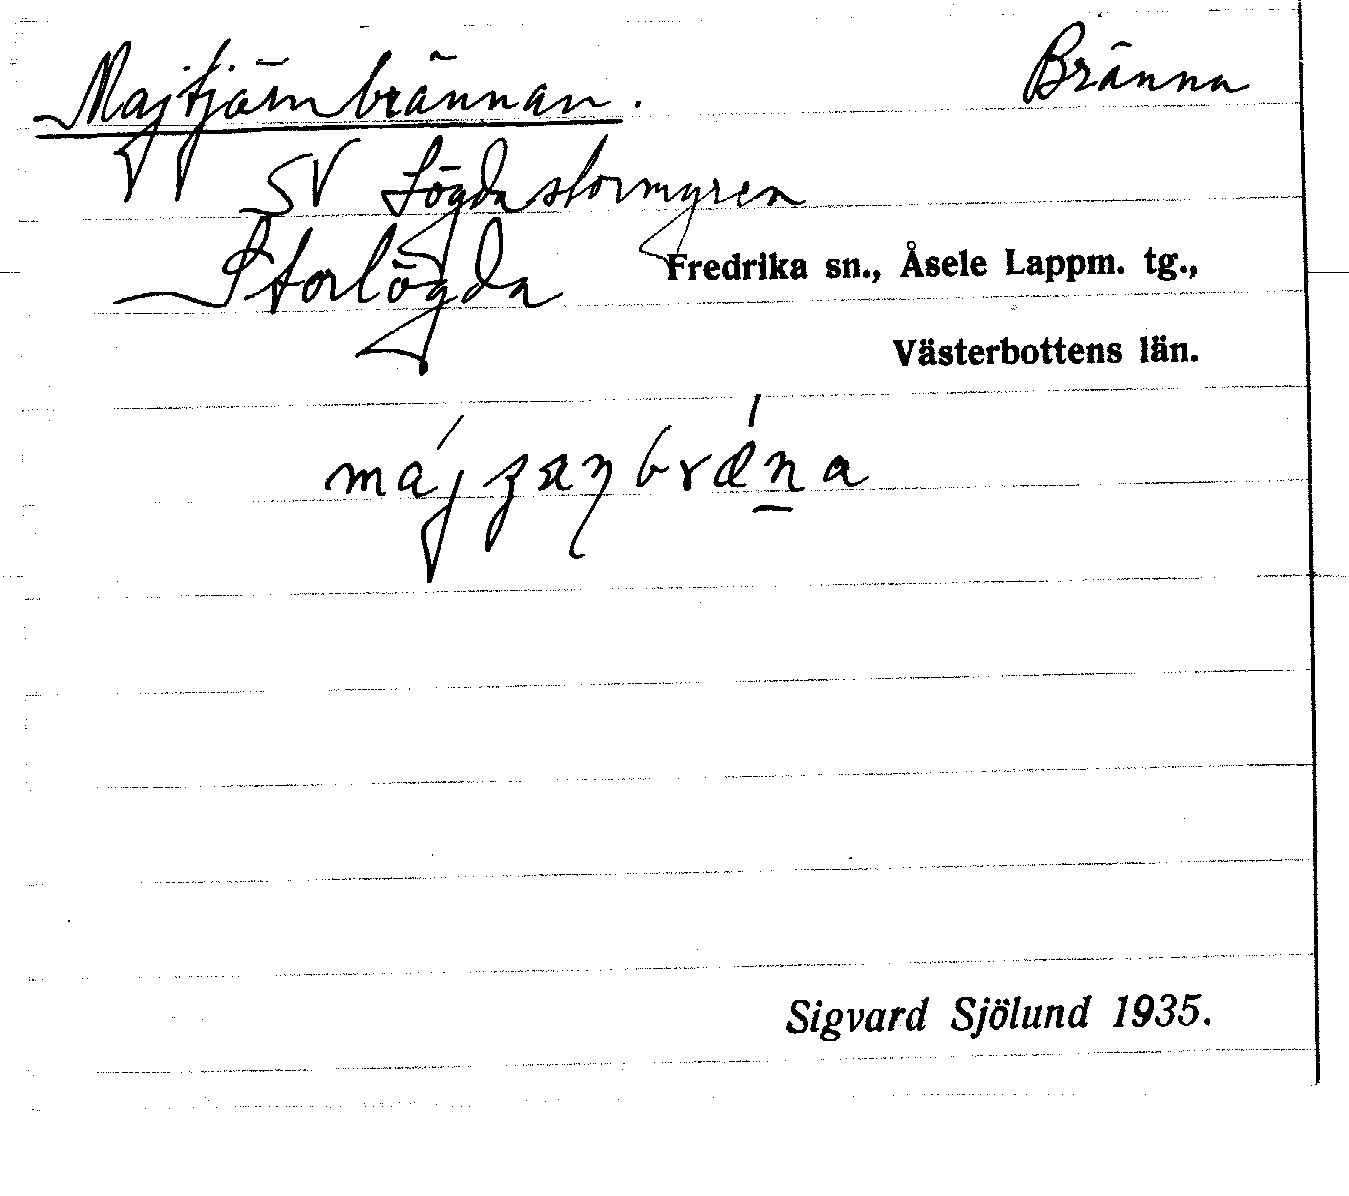 Majtjärnbrännan. Bränna
SV Lögdastormyren
Storlögda Fredrika sn., Åsele Lappm. tg.,
Västerbottens län.
Sigvard Sjölund 1935.